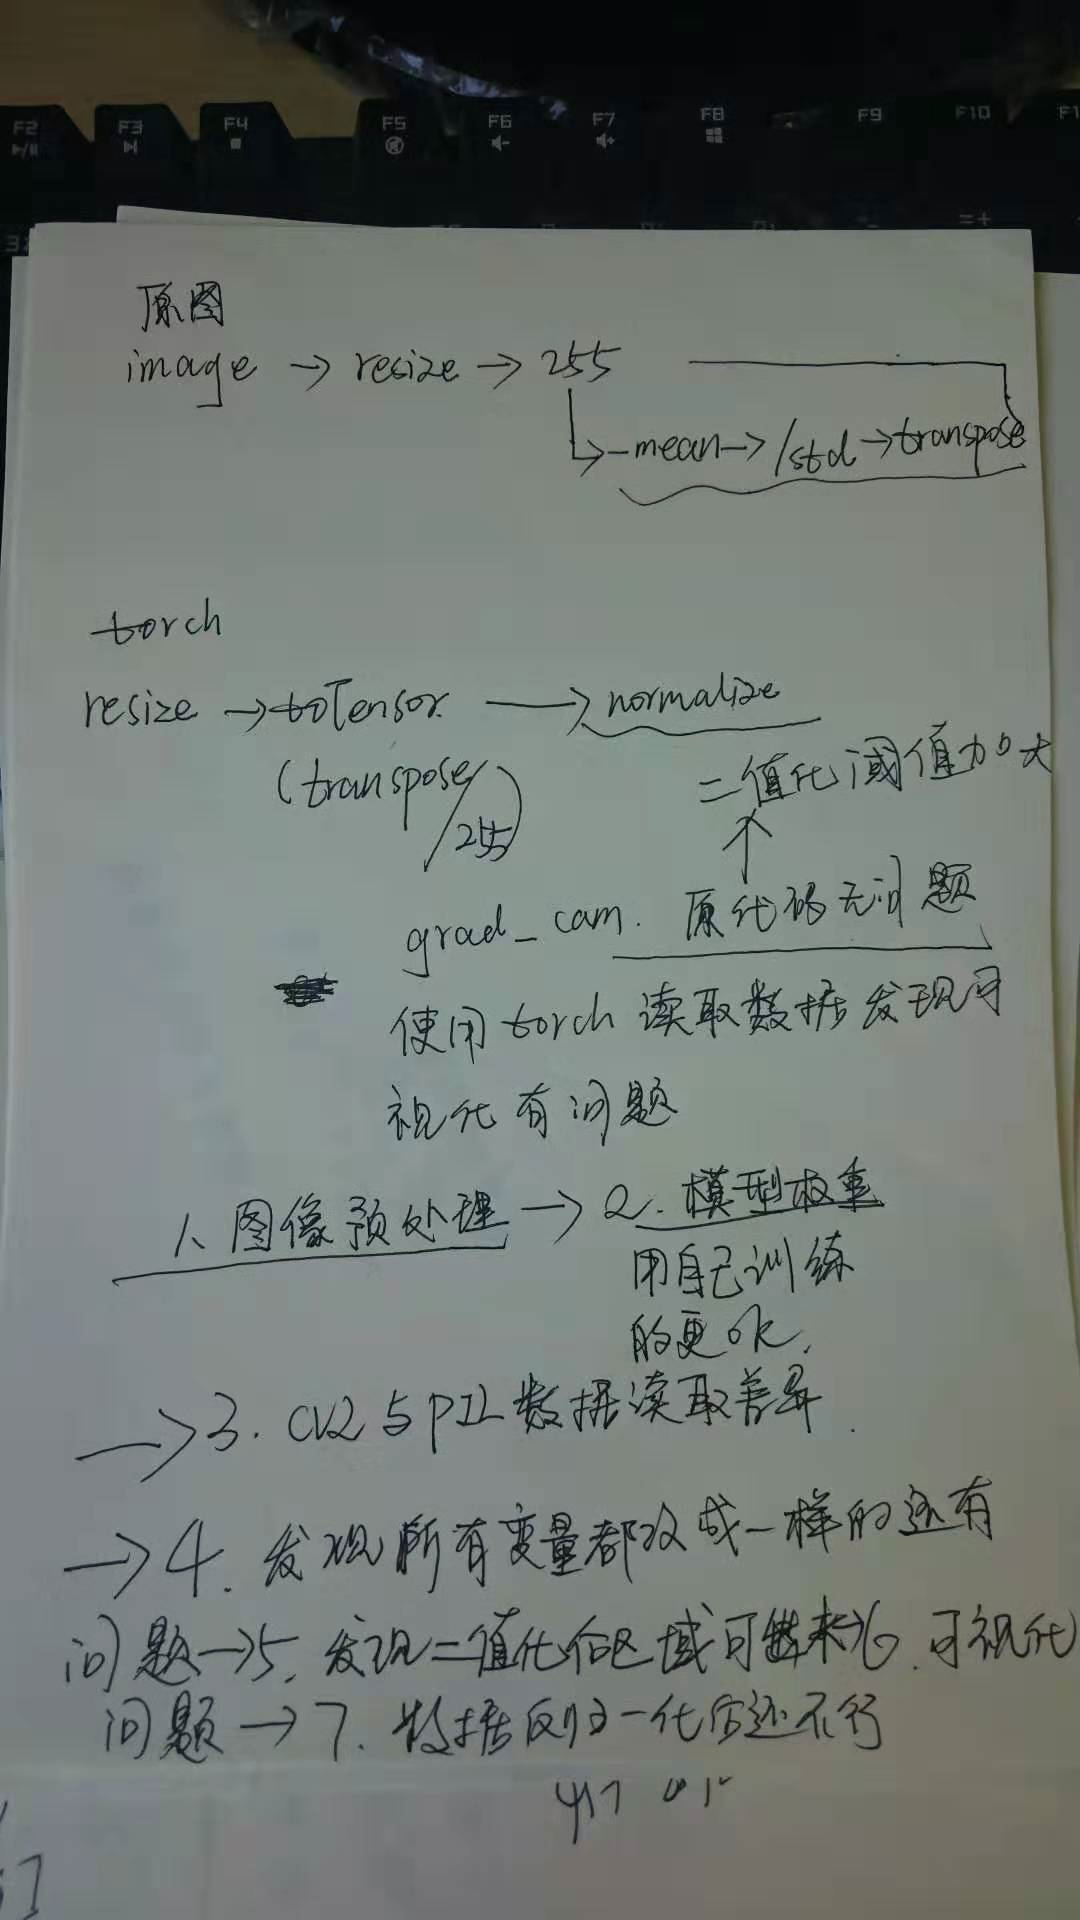 F2 F3 F4 F5 F6 F7 F8 F9 F10 F1
原图
image → resize → 255
→ -mean → /std → transpose
torch
resize → toTensor → normalize
(transpose/255)
二值化阈值加大
↑
grad_cam. 原代码无问题
使用torch读取数据发现可
视化有问题
1、图像预处理 → 2. 模型权重
用自己训练
的更ok.
→ 3. CV2与PIL数据读取差异.
→ 4. 发现所有变量都改成一样的还有
问题 → 5. 发现二值化 区域可 来 6. 可视化
问题 → 7. 数据反归一化后还不行